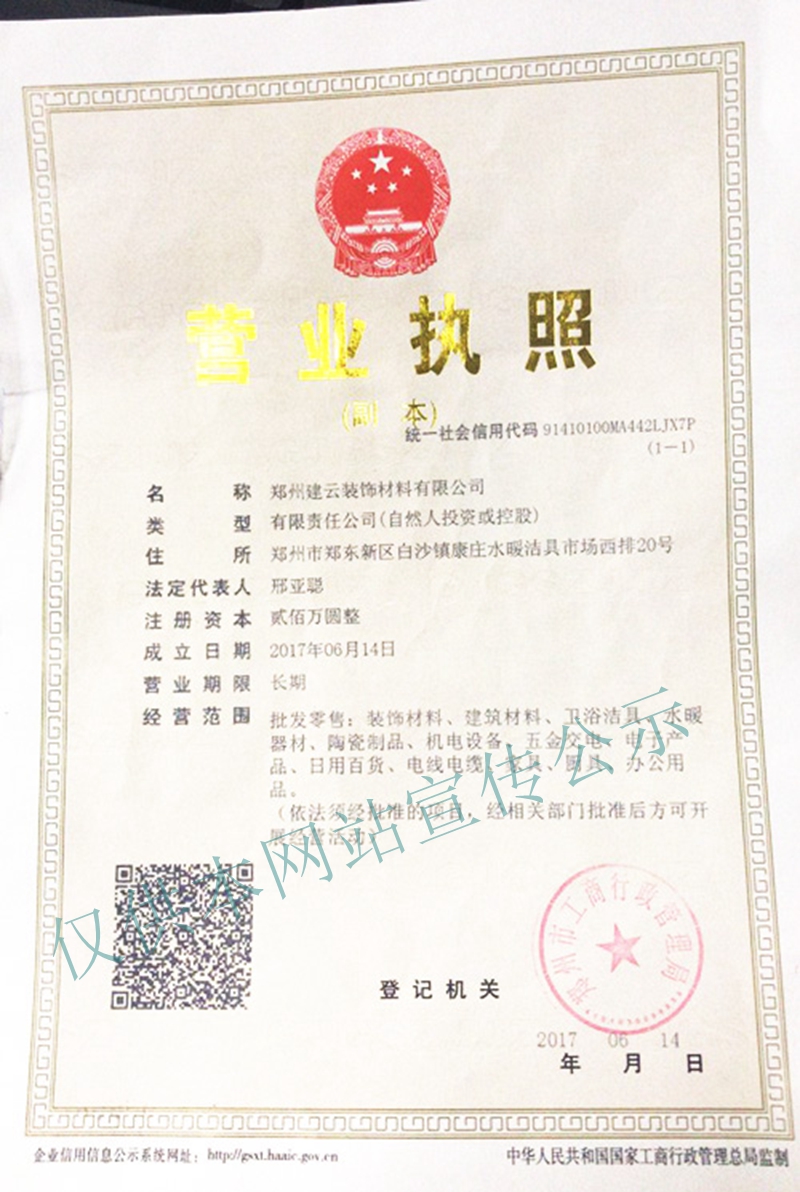 营业执照
(副 本)
统一社会信用代码 91410100MA442LJX7P
(1-1)
名 称 郑州建云装饰材料有限公司
类 型 有限责任公司(自然人投资或控股)
住 所 郑州市郑东新区白沙镇康庄水暖洁具市场西排20号
法定代表人 邢亚聪
注册资本 贰佰万圆整
成立日期 2017年06月14日
营业期限 长期
经营范围 批发零售：装饰材料、建筑材料、卫浴洁具、水暖
器材、陶瓷制品、机电设备、五金交电、电子产
品、日用百货、电线电缆、家具、厨具、办公用
品。
（依法须经批准的项目，经相关部门批准后方可开
展经营活动）
仅供本网站宣传公示
郑州市工商行政管理局
登记机关
2017 06 14
年 月 日
企业信用信息公示系统网址：http://gsxt.haaic.gov.cn
中华人民共和国国家工商行政管理总局监制